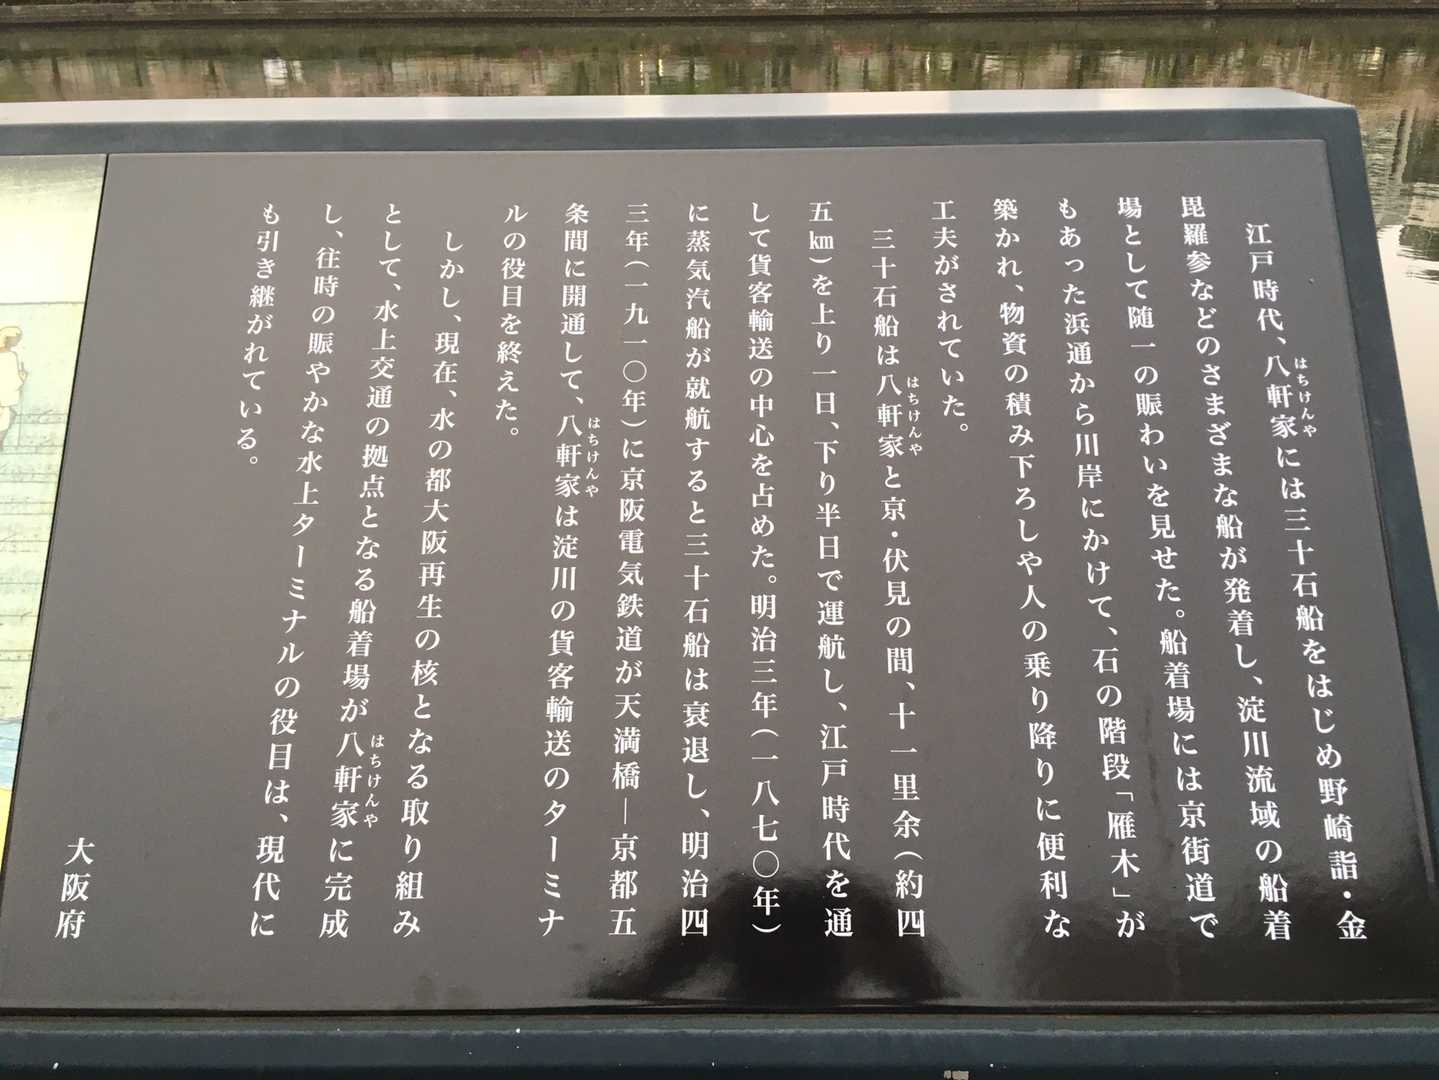 江戸時代、八軒家には三十石船をはじめ野崎詣・金
はちけんや
毘羅参などのさまざまな船が発着し、淀川流域の船着
場として随一の賑わいを見せた。船着場には京街道で
もあった浜通から川岸にかけて、石の階段「雁木」が
築かれ、物資の積み下ろしや人の乗り降りに便利な
工夫がされていた。
三十石船は八軒家と京・伏見の間、十一里余(約四
はちけんや
五㎞)を上り一日、下り半日で運航し、江戸時代を通
して貨客輸送の中心を占めた。明治三年(一八七〇年)
に蒸気汽船が就航すると三十石船は衰退し、明治四
三年(一九一〇年)に京阪電気鉄道が天満橋―京都五
条間に開通して、八軒家は淀川の貨客輸送のターミナ
はちけんや
ルの役目を終えた。
しかし、現在、水の都大阪再生の核となる取り組み
として、水上交通の拠点となる船着場が八軒家に完成
はちけんや
し、往時の賑やかな水上ターミナルの役目は、現代に
も引き継がれている。
大阪府